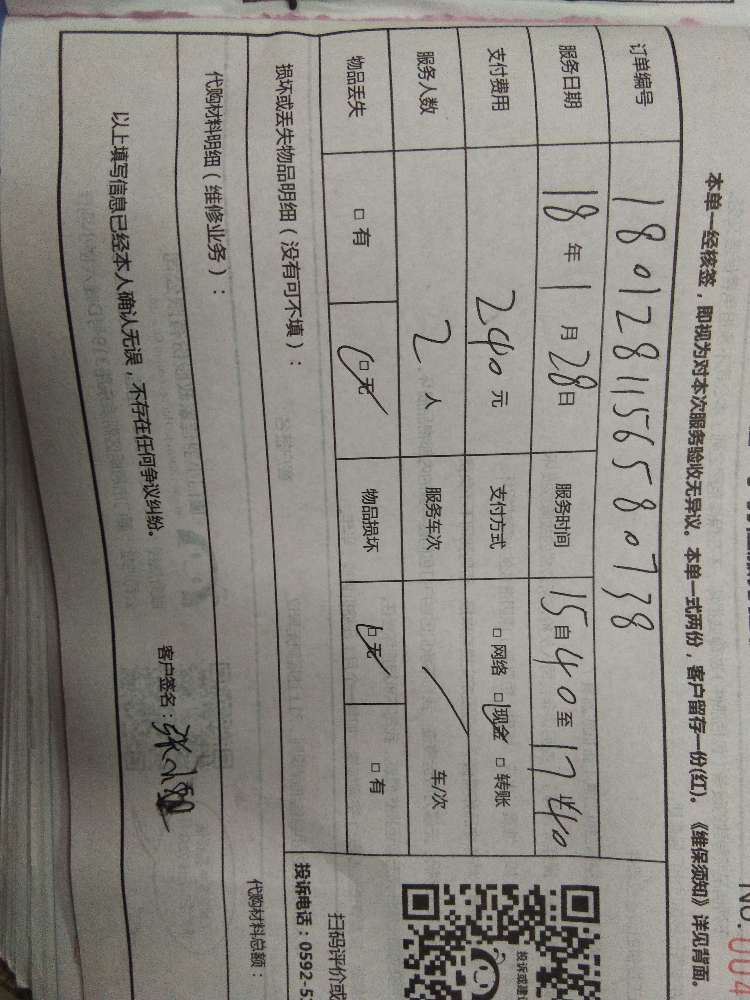 No.004
本单一经核签，即视为对本次服务验收无异议。本单一式两份，客户留存一份(红)。《维保须知》详见背面。
订单编号 1801281156580738
服务日期 18年1月28日 服务时间 15自40至17止40
支付费用 240元 支付方式 □网络 □现金 □转账
服务人数 2人 服务车次 / 车/次
物品丢失 □有 □无 物品损坏 □无 □有
损坏或丢失物品明细（没有可不填）：
代购材料明细（维修业务）： 代购材料总额：
以上填写信息已经本人确认无误，不存在任何争议纠纷。
客户签名：张
投诉或建
扫码评价或
投诉电话：0592-5